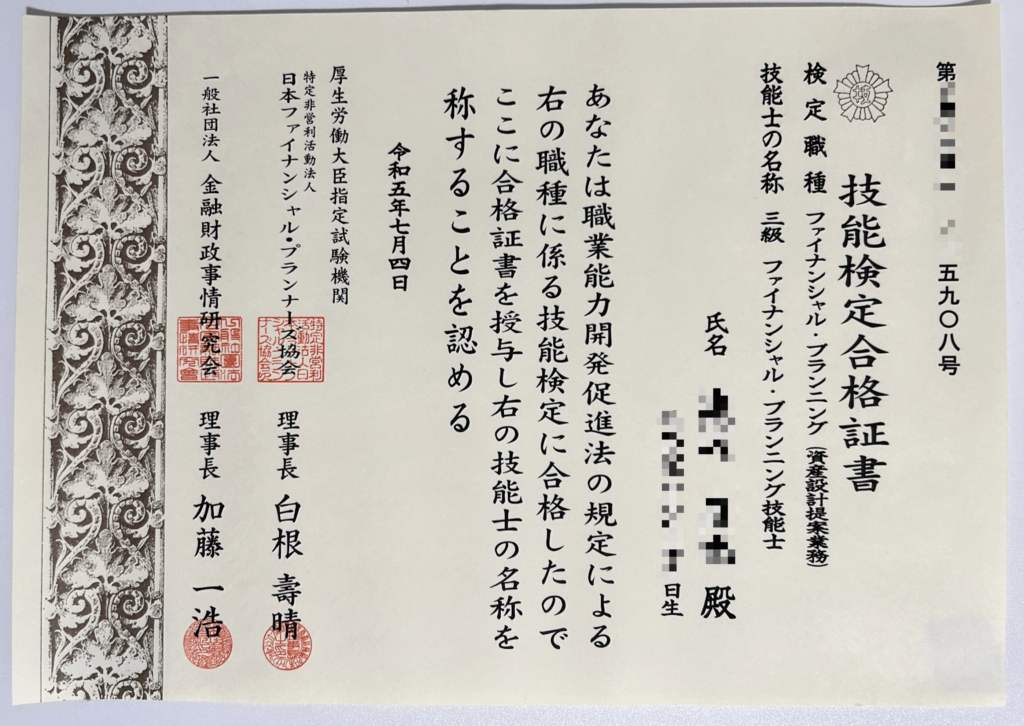 第 五九〇八号
技能検定合格証書
検定職種 ファイナンシャル・プランニング（資産設計提案業務）
技能士の名称 三級 ファイナンシャル・プランニング技能士
氏名 殿
日生
あなたは職業能力開発促進法の規定による
右の職種に係る技能検定に合格したので
ここに合格証書を授与し右の技能士の名称を
称することを認める
令和五年七月四日
厚生労働大臣指定試験機関
特定非営利活動法人
日本ファイナンシャル・プランナーズ協会 理事長 白根 壽晴
一般社団法人 金融財政事情研究会 理事長 加藤 一浩